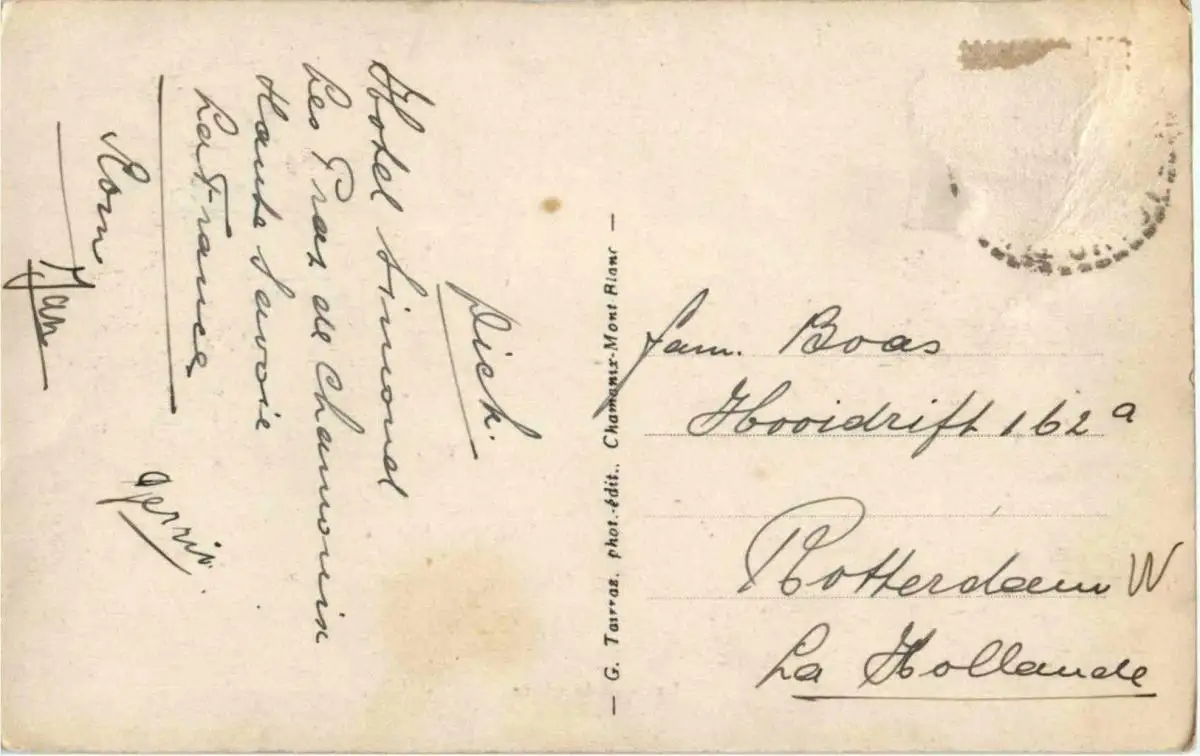 Dick.
Hotel Simond
Les Praz de Chamonix
Haute Savoie
La France
Corn
Jan
Gerrit.
— G. Tairraz, phot.-édit., Chamonix-Mont-Blanc —
fam. Boas
Hooidrift 162 a
Rotterdam W
La Hollande